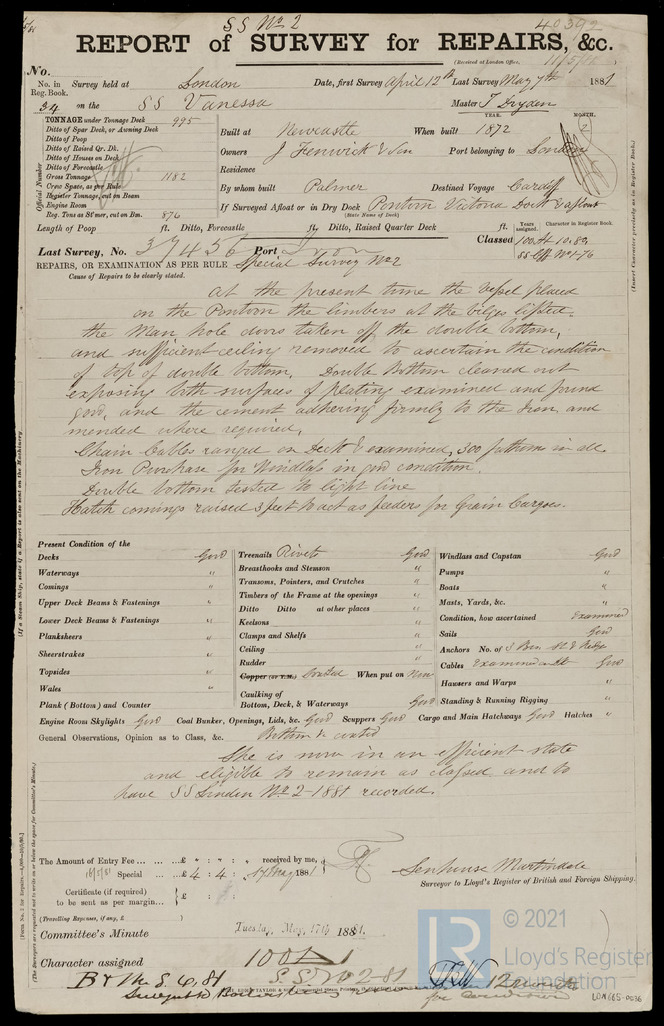 SS No 2
40392
REPORT of SURVEY for REPAIRS, &c.
(Received at London Office,
No.
No. in Reg. Book. Survey held at London Date, first Survey April 12th Last Survey May 7th 1881
34 on the SS Vanessa Master J Dryden
TONNAGE under Tonnage Deck 995
Ditto of Spar Deck, or Awning Deck
Ditto of Poop
Ditto of Raised Qr. Dk.
Ditto of Houses on Deck
Ditto of Forecastle
Gross Tonnage 1182
Crew Space, as per Rule
Register Tonnage, cut on Beam
Engine Room
Reg. Tons as St'mer, cut on Bm. 876
Official Number
YEAR. MONTH.
Built at Newcastle When built 1872
Owners J Fenwick & Son Port belonging to London
Residence
By whom built Palmer Destined Voyage Cardiff
If Surveyed Afloat or in Dry Dock Pontoon Victoria Dock & afloat
(State Name of Dock)
Length of Poop ft. Ditto, Forecastle ft. Ditto, Raised Quarter Deck ft.
Years assigned. Character in Register Book.
Classed 100A1
Last Survey, No. 37456 Port
REPAIRS, OR EXAMINATION AS PER RULE Special Survey No 2
Cause of Repairs to be clearly stated.
(Insert Character precisely as in Register Book.)
At the present time the Vessel placed
on the Pontoon the limbers at the bilges lifted,
the Man hole doors taken off the double bottom,
and sufficient ceiling removed to ascertain the condition
of top of double bottom. Double Bottom cleaned out
exposing both surfaces of plating examined and found
good, and the cement adhering firmly to the Iron, and
mended where required,
Chain Cables ranged on Deck & examined, 300 fathoms in all.
Iron Purchase for Windlass in good condition.
Double bottom tested to light line
Hatch comings raised 3 feet to act as feeders for Grain Cargoes.
Present Condition of the
Decks Good
Waterways "
Comings "
Upper Deck Beams & Fastenings "
Lower Deck Beams & Fastenings "
Planksheers "
Sheerstrakes "
Topsides "
Wales "
Plank (Bottom) and Counter
Treenails Rivets Good
Breasthooks and Stemson "
Transoms, Pointers, and Crutches "
Timbers of the Frame at the openings "
Ditto Ditto at other places "
Keelsons "
Clamps and Shelfs "
Ceiling "
Rudder "
Copper (or Y.M.) Coated When put on Now
Caulking of
Bottom, Deck, & Waterways Good
Windlass and Capstan Good
Pumps "
Boats "
Masts, Yards, &c. "
Condition, how ascertained Examined
Sails Good
Anchors No. of 3 Bow St & Kedge
Cables Examined Good
Hawsers and Warps "
Standing & Running Rigging "
Engine Room Skylights Good Coal Bunker, Openings, Lids, &c. Good Scuppers Good Cargo and Main Hatchways Good Hatches "
General Observations, Opinion as to Class, &c. Bottom coated
She is now in an efficient state
and eligible to remain as classed and to
have SS London No 2-1881 recorded.
(If a Steam Ship, state if a Report is also sent on the Machinery.
The Amount of Entry Fee £ " : " : " received by me,
Special £ 4 : 4 : 17 May 1881
Certificate (if required) to be sent as per margin £ : :
(Travelling Expenses, if any, £ )
Senhouse Martindale
Surveyor to Lloyd's Register of British and Foreign Shipping.
Committee's Minute Tuesday, May 17th 1881.
Character assigned 100A1
B & MS 6.81 S.S No 2-81
(The Surveyors are requested not to write on or below the space for Committee's Minute.)
© 2021
Lloyd's Register
Foundation
LON665-0036